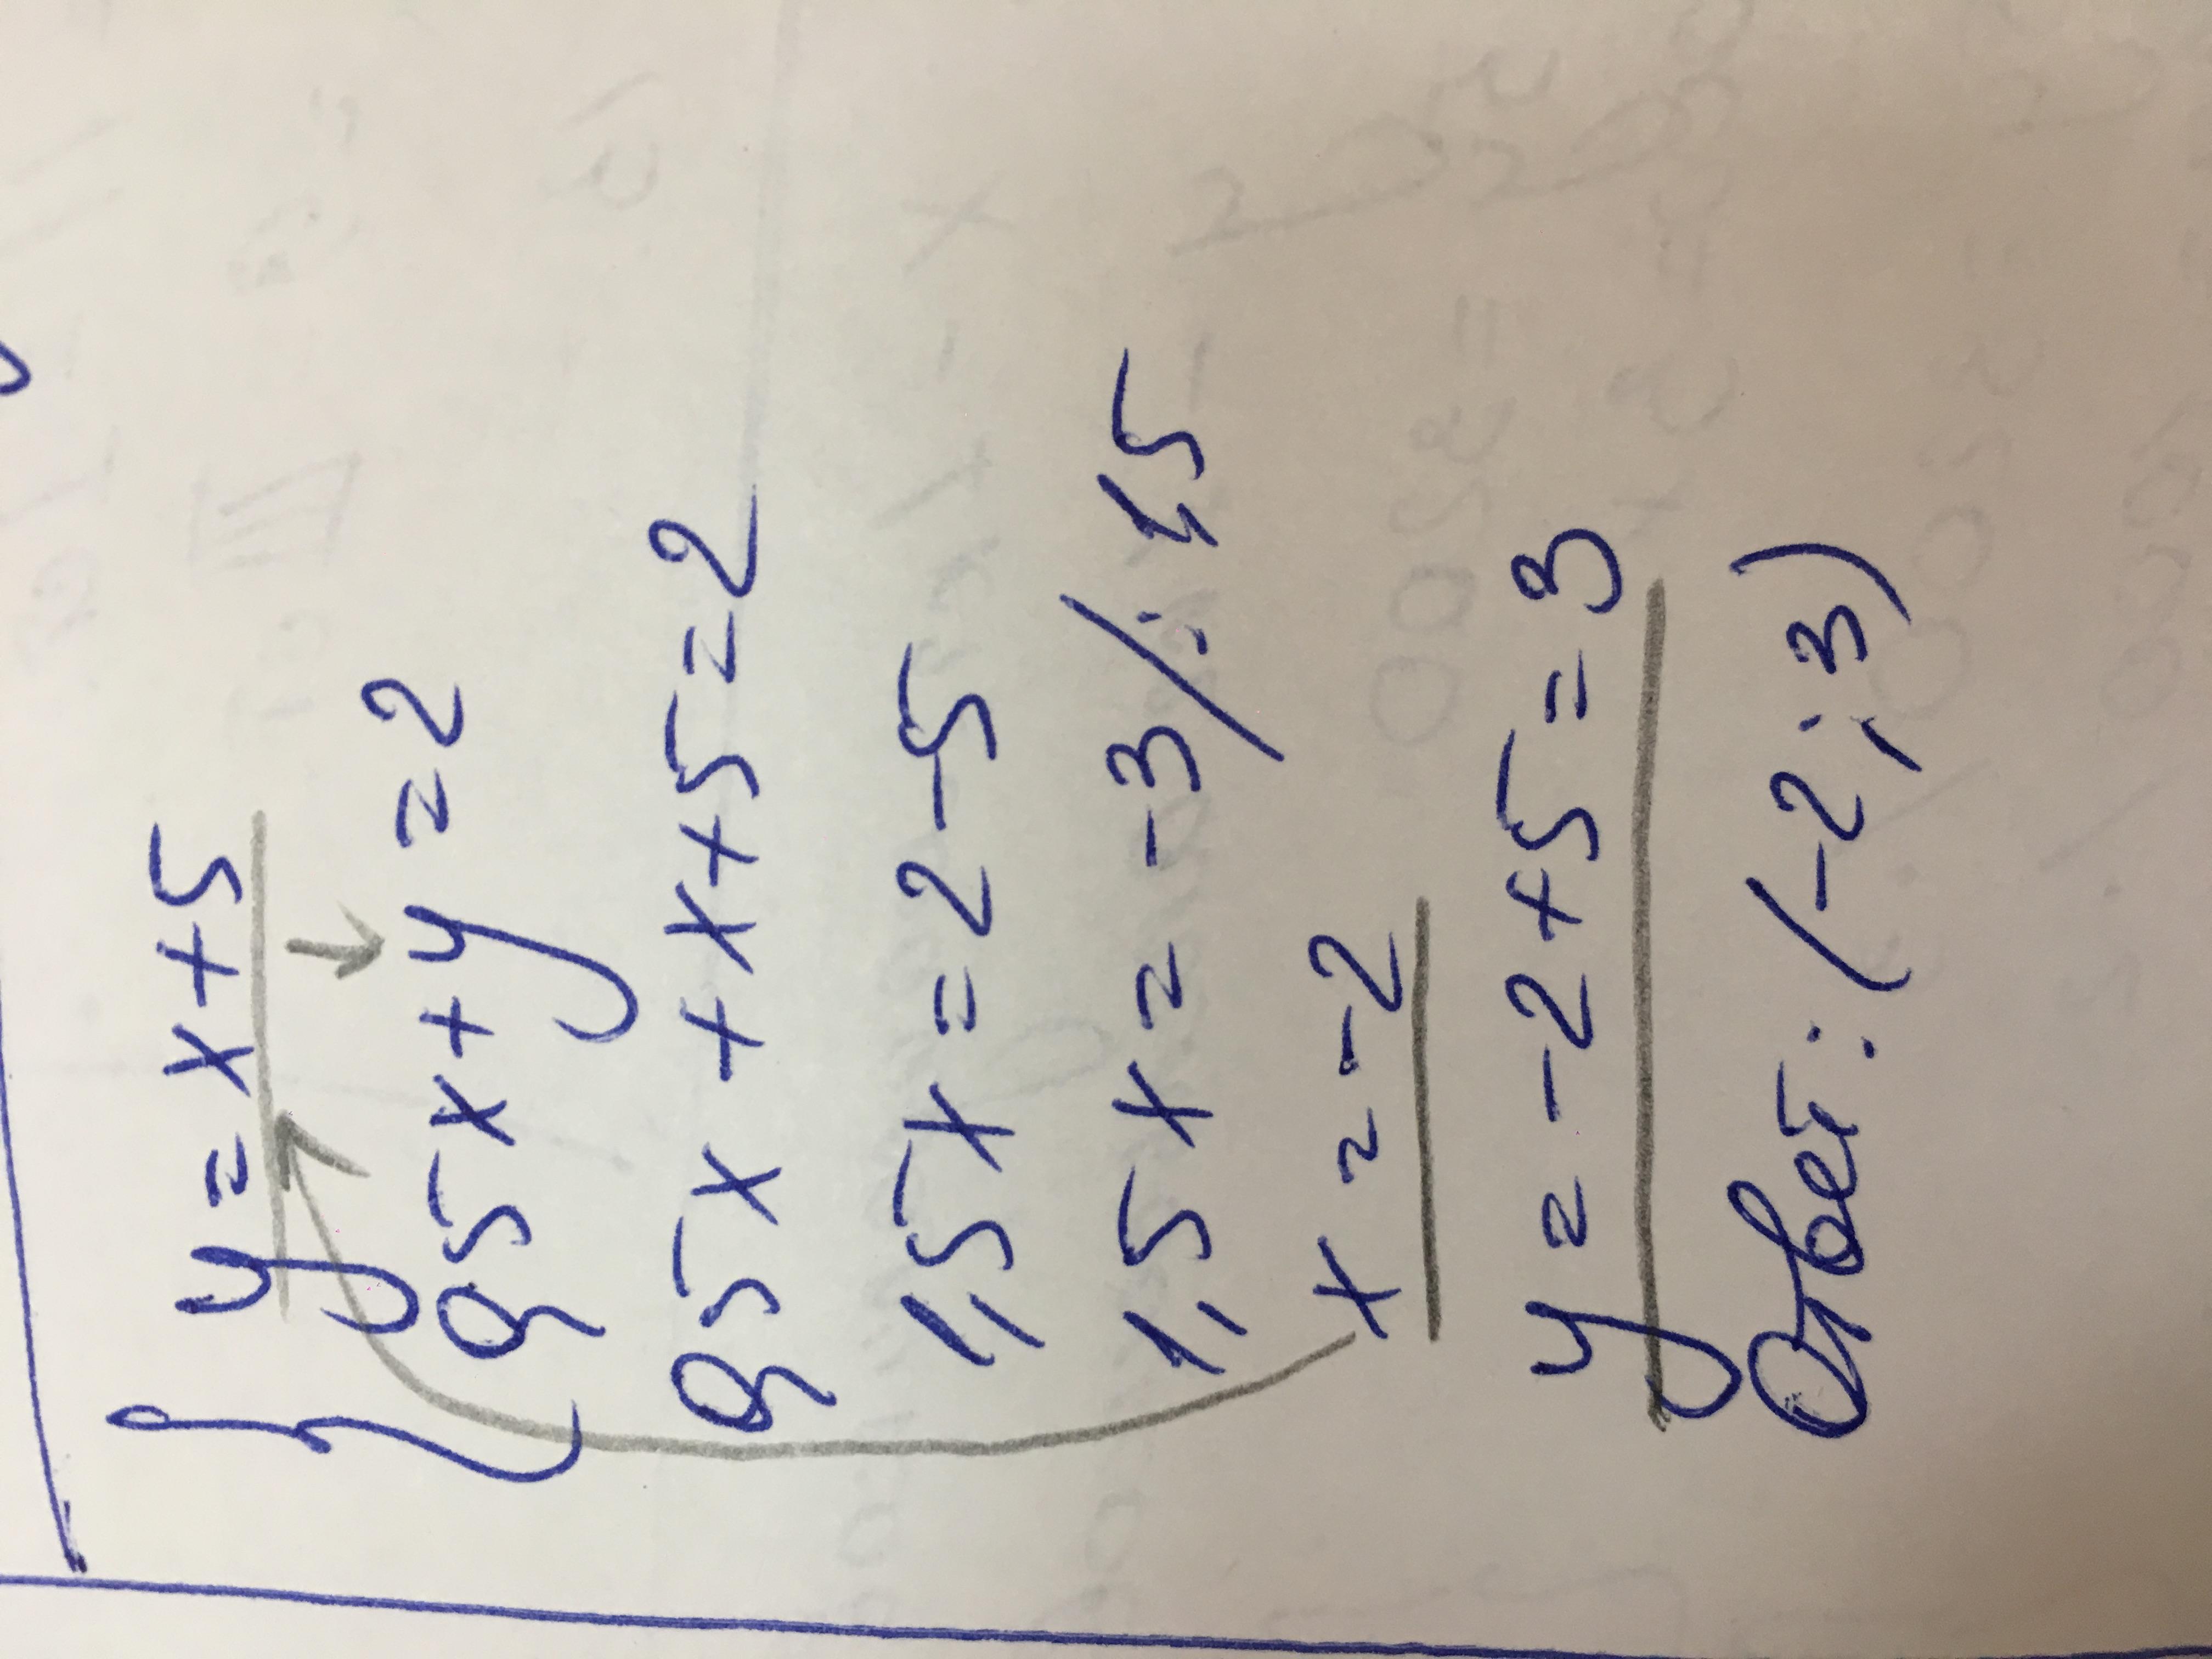 { y = x + 5
0,5x + y = 2
0,5x + x + 5 = 2
1,5x = 2 - 5
1,5x = -3 / : 1,5
x = -2
y = -2 + 5 = 3
Ответ: (-2; 3)